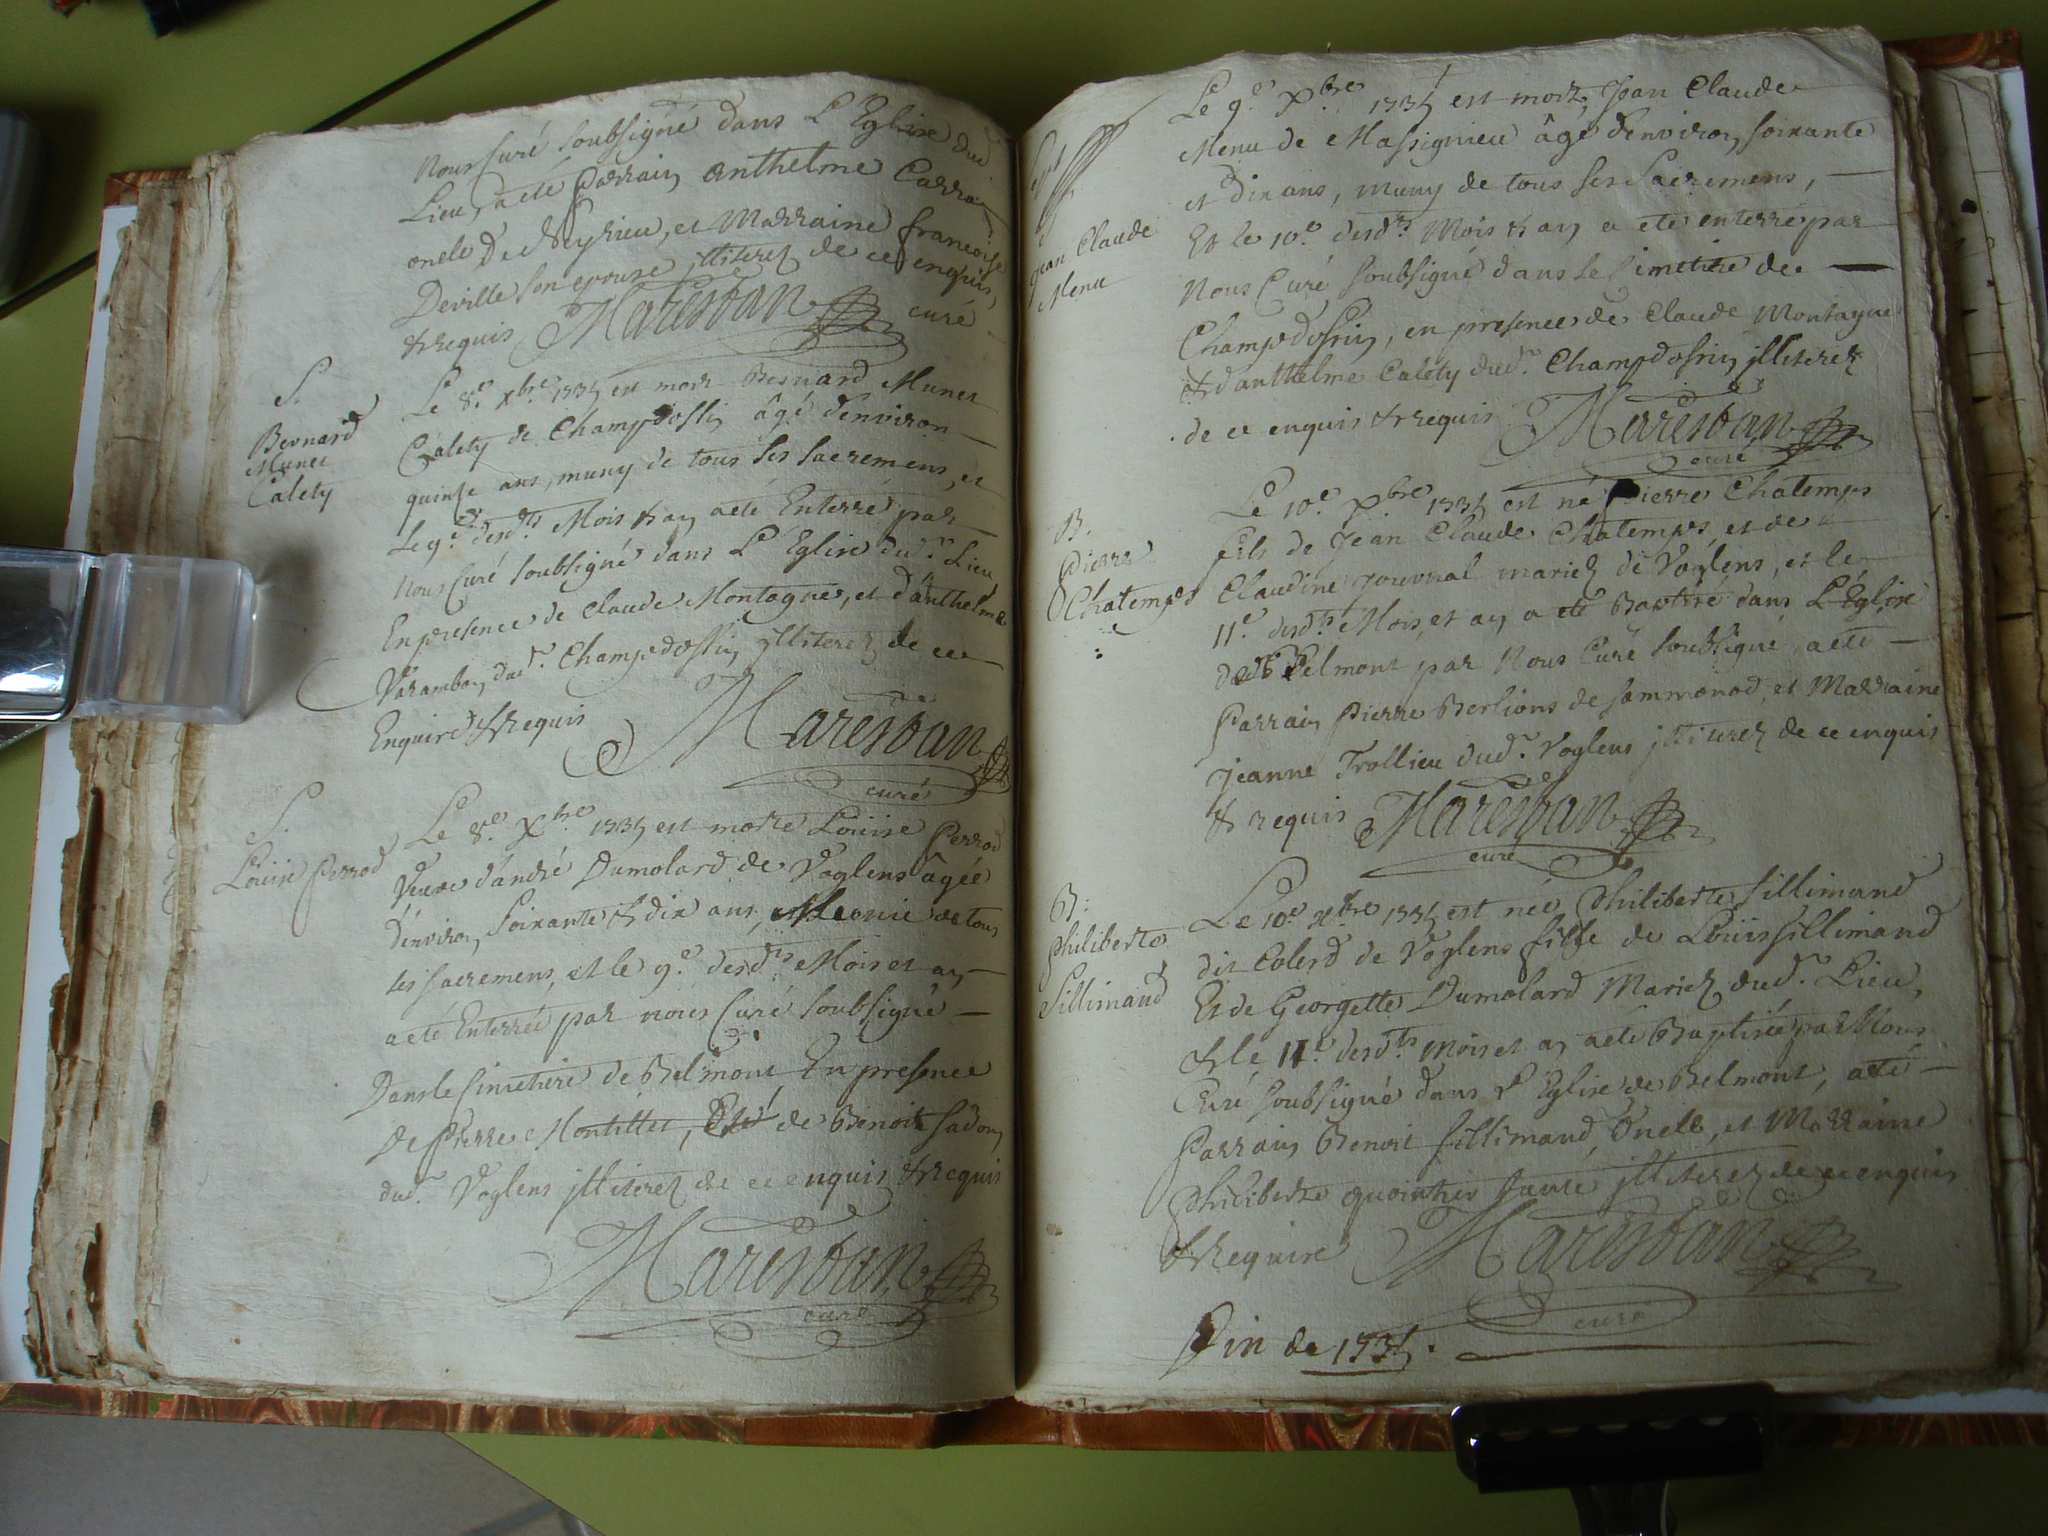 Nous Curé soubsigné dans L'Eglise dud.
Lieu, a été Parrain Anthelme Carra
oncle de Neyrieu, et Marraine francoise
Deville son epouse illiterez de ce enquis,
& requis Maresban curé
S.
Bernard
Munet
Calety
Le 8.e Xbre 1735 est mort Bernard Munet
Calety de Champdossin âgé d'environ
quinse ans, muny de tous ses sacremens, et
Le 9.e desd.ts Mois & an a été Enterré par
nous Curé soubsigné dans L'Eglise dud.t Lieu,
En presence de Claude Montagne, et d'anthelme
Varambon dud.t Champdossin illiterez de ce
Enquis & requis
Maresban
curé
S.
Louise Perrod
Le 8.e Xbre 1735 est morte Louise Perrod
Veuve d'andré Dumolard de Voglens âgée
d'environ soixante & dix ans, Munie de tous
ses sacremens, et le 9.e desd.ts Mois et an
a été Enterrée par nous Curé soubsigné
Dans le simetiere de Belmont En presence
de Pierre Montillet, et de Benoit sadon
dud.t Voglens illiterez de ce enquis & requis
Maresban
curé
Sept
Jean Claude
Menu
Le 9.e Xbre 1735 est mort, Jean Claude
Menu de Massignieu âgé d'environ soixante
et dix ans, muny de tous ses sacremens,
Et le 10.e desd.ts Mois & an a été enterré par
Nous Curé soubsigné dans le simetiere de
Champdossin, en presence de Claude Montagne
& d'anthelme Calety dud.t Champdossin illiterez
de ce enquis & requis Maresban
curé
B.
Pierre
Chatemps
Le 10.e Xbre 1735 est né Pierre Chatemps
fils de Jean Claude Chatemps, et de
Claudine Journal mariez de Voglens, et le
11.e desd.ts Mois, et an a été Baptisé dans L'Eglise
de Belmont par Nous Curé soubsigné, a été
Parrain Pierre Berlions de sammonod, et Marraine
Jeanne Trollieu dud.t Voglens illiterez de ce enquis
& requis Maresban
curé
B:
Philiberte
Sillimand
Le 10.e Xbre 1735 est née Philiberte Sillimand
dit Colerd de Voglens fille de Loüis Sillimand
Et de Georgette Dumolard Mariez dud.t Lieu,
& le 11.e desd.ts mois et an a été Baptisée par Nous
Curé soubsigné dans L'Eglise de Belmont, a été
Parrain Benoit Sillimand Oncle, et Marraine
Philiberte illiterez de ce enquis
& Requis Maresban
curé
Fin de 1735.